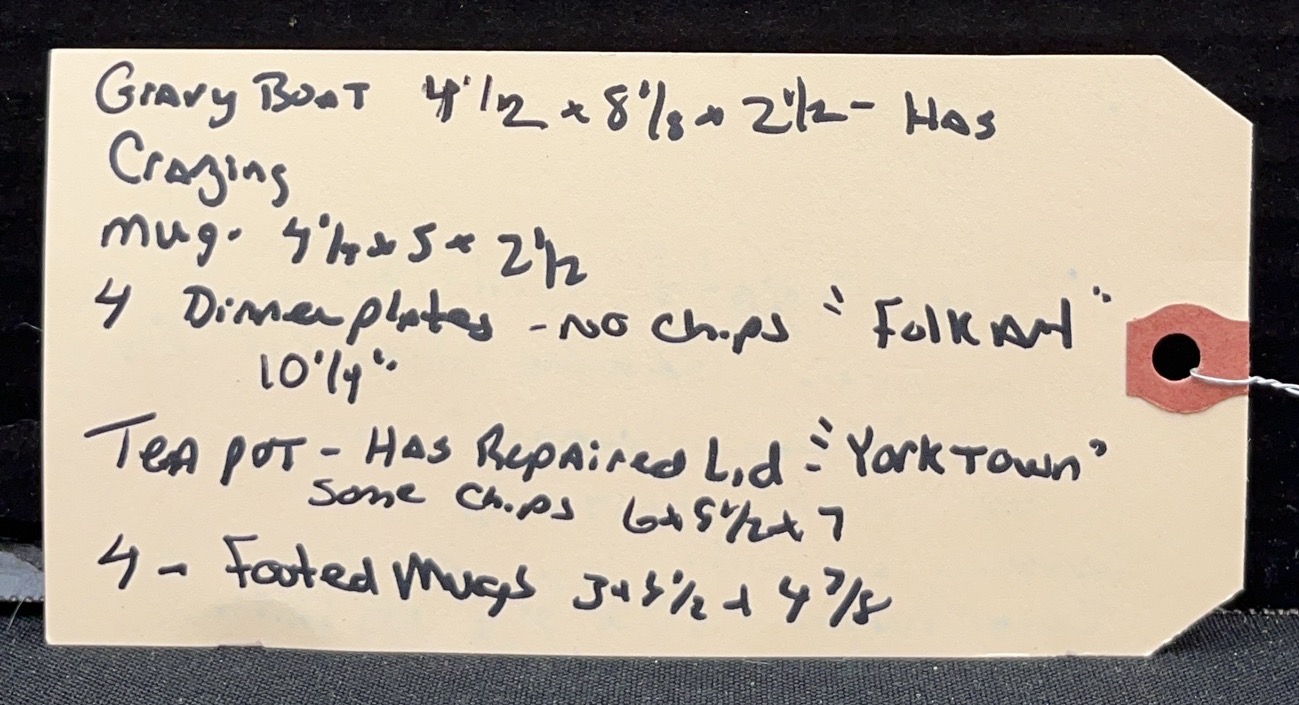 Gravy Boat 4 1/2 x 8 1/8 x 2 1/2 - Has
Crazing
Mug. 4 1/4 x 5 x 2 1/2
4 Dinner plates - No chips "Folk Art"
10 1/4"
Tea pot - Has Repaired Lid - "Yorktown"
Some chips 6 x 5 1/2 x 7
4 - Footed Mugs 3 x 5 1/2 x 4 7/8